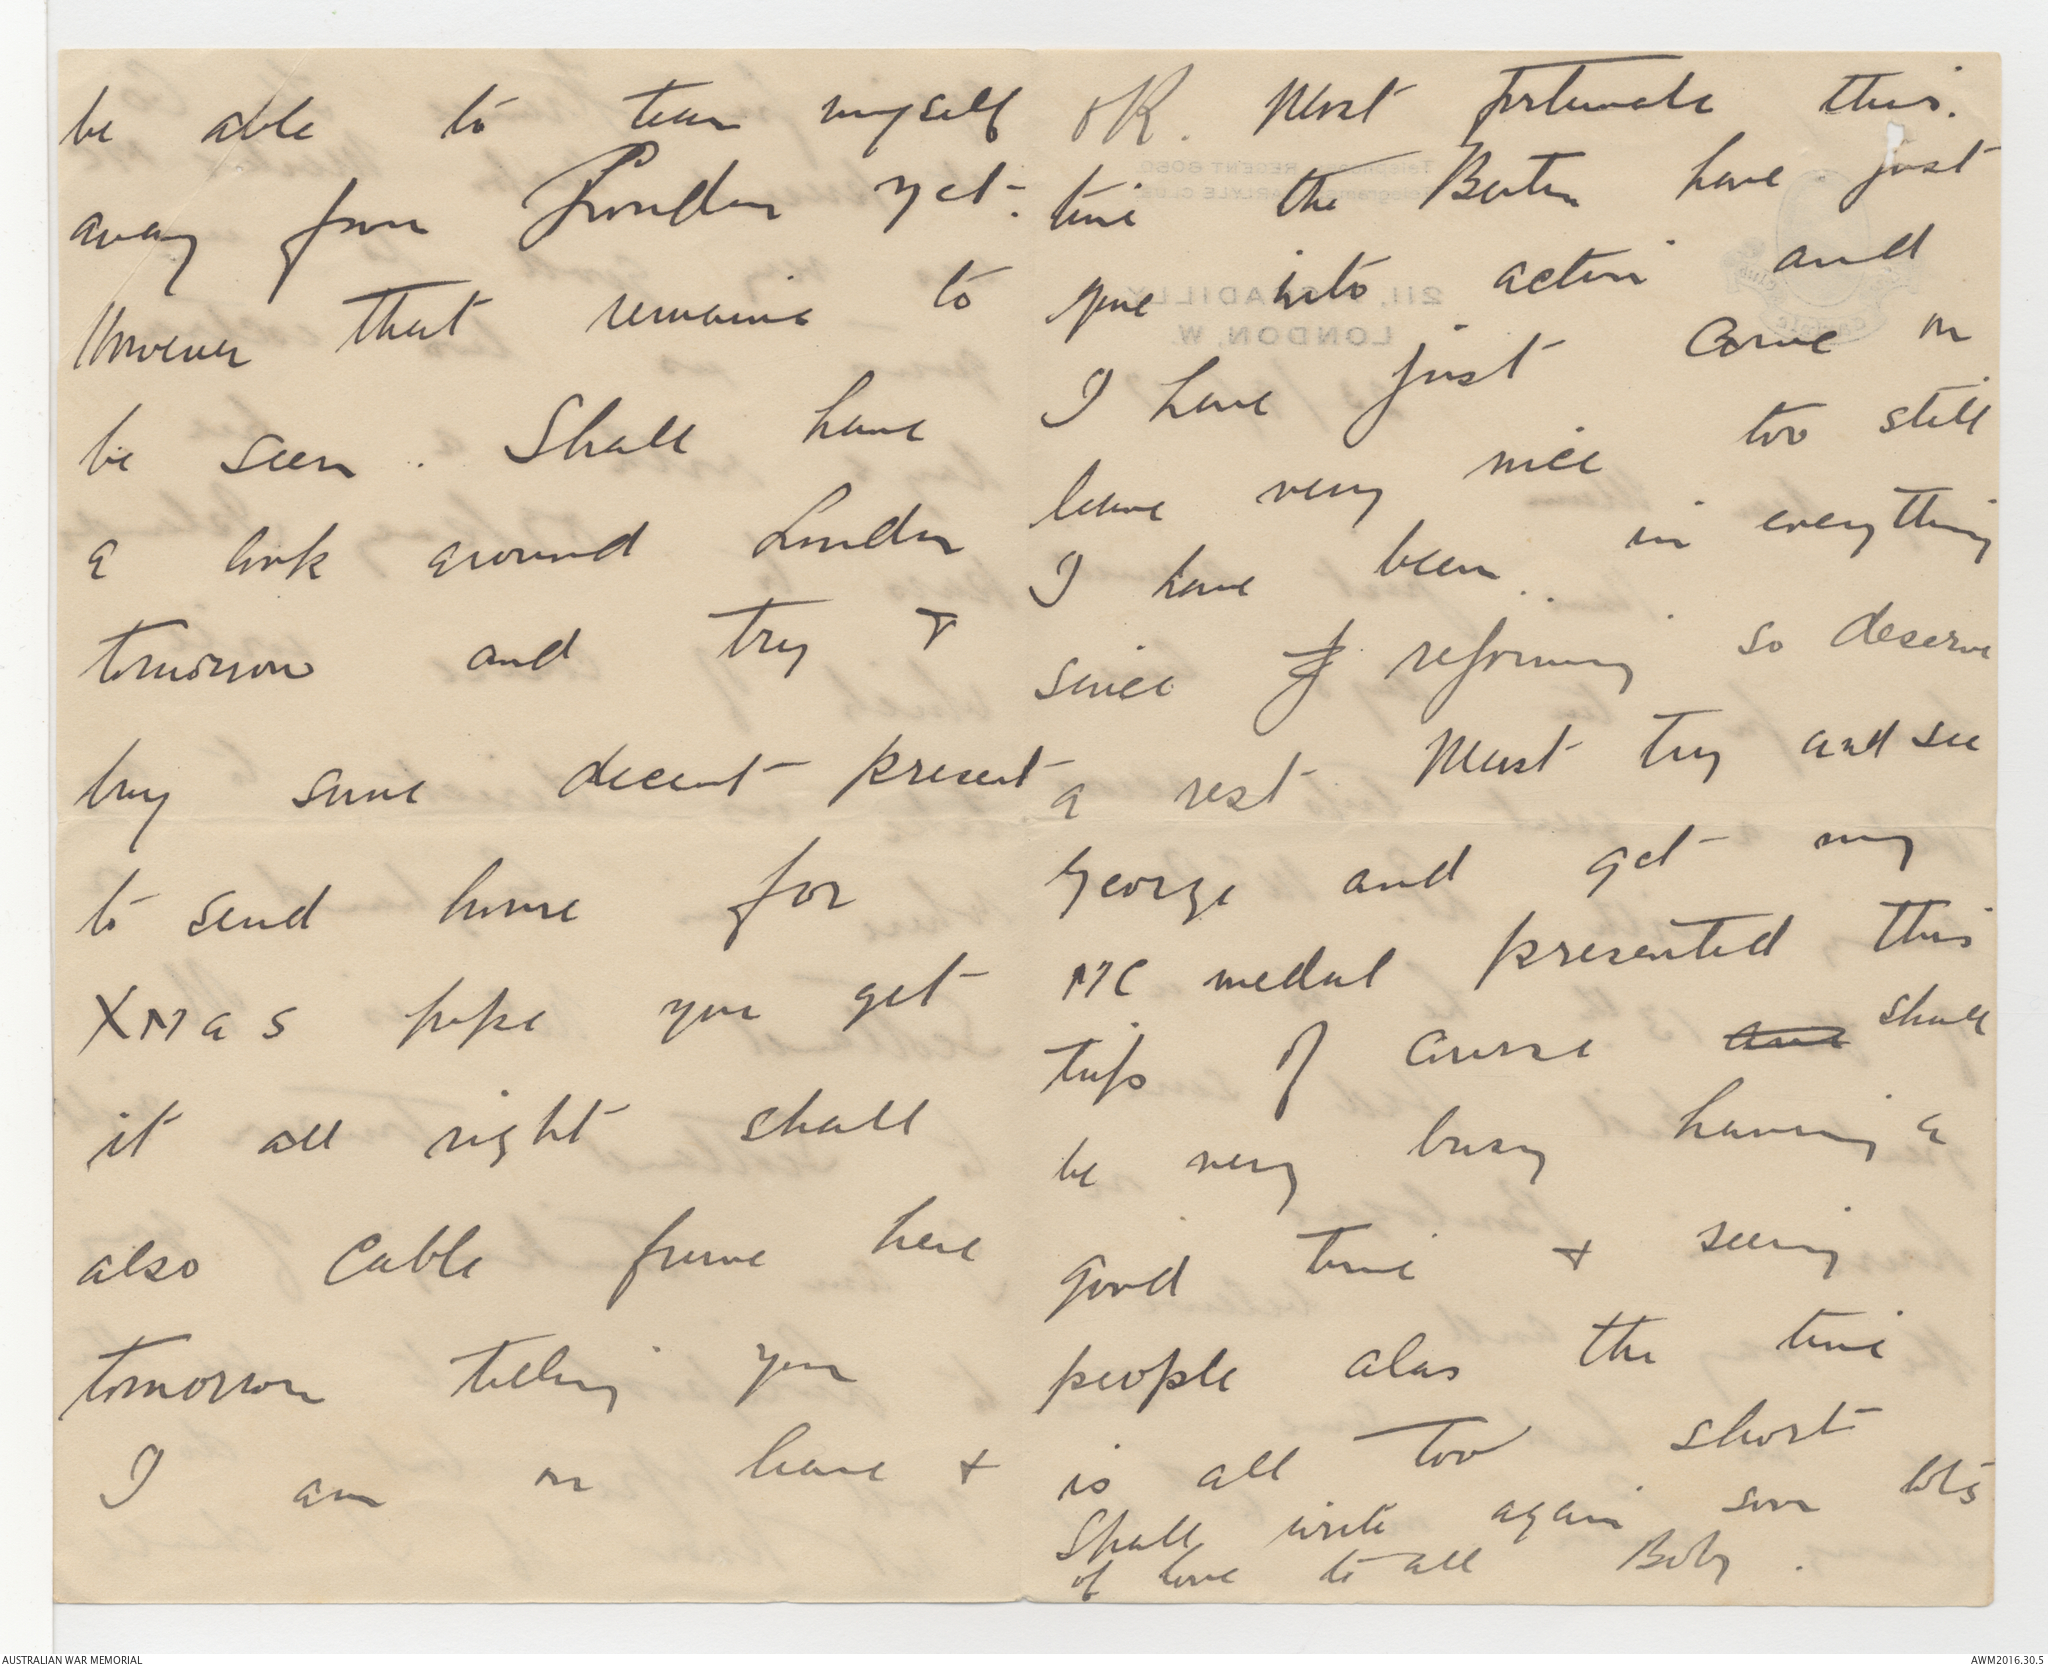 be able to tear myself
away from London yet.
However that remains to
be seen. Shall have
a look around London
tomorrow and try &
buy some decent present
to send home for
XMas hope you get
it all right shall
also cable from here
tomorrow telling you
I am on leave +
OK. Most fortunate this.
time the Bat'n have just
gone into action and
I have just come on
leave very nice too still
I have been in everything
since reforming so deserve
a rest. Must try and see
George and get my
MC medal presented this
trip of course are shall
be very busy having a
good time + seeing
people alas the time
is all too short
Shall write again soon lots
of love to all Boby.
211, PICCADILLY
LONDON, W.
AUSTRALIAN WAR MEMORIAL
AWM2016.30.5